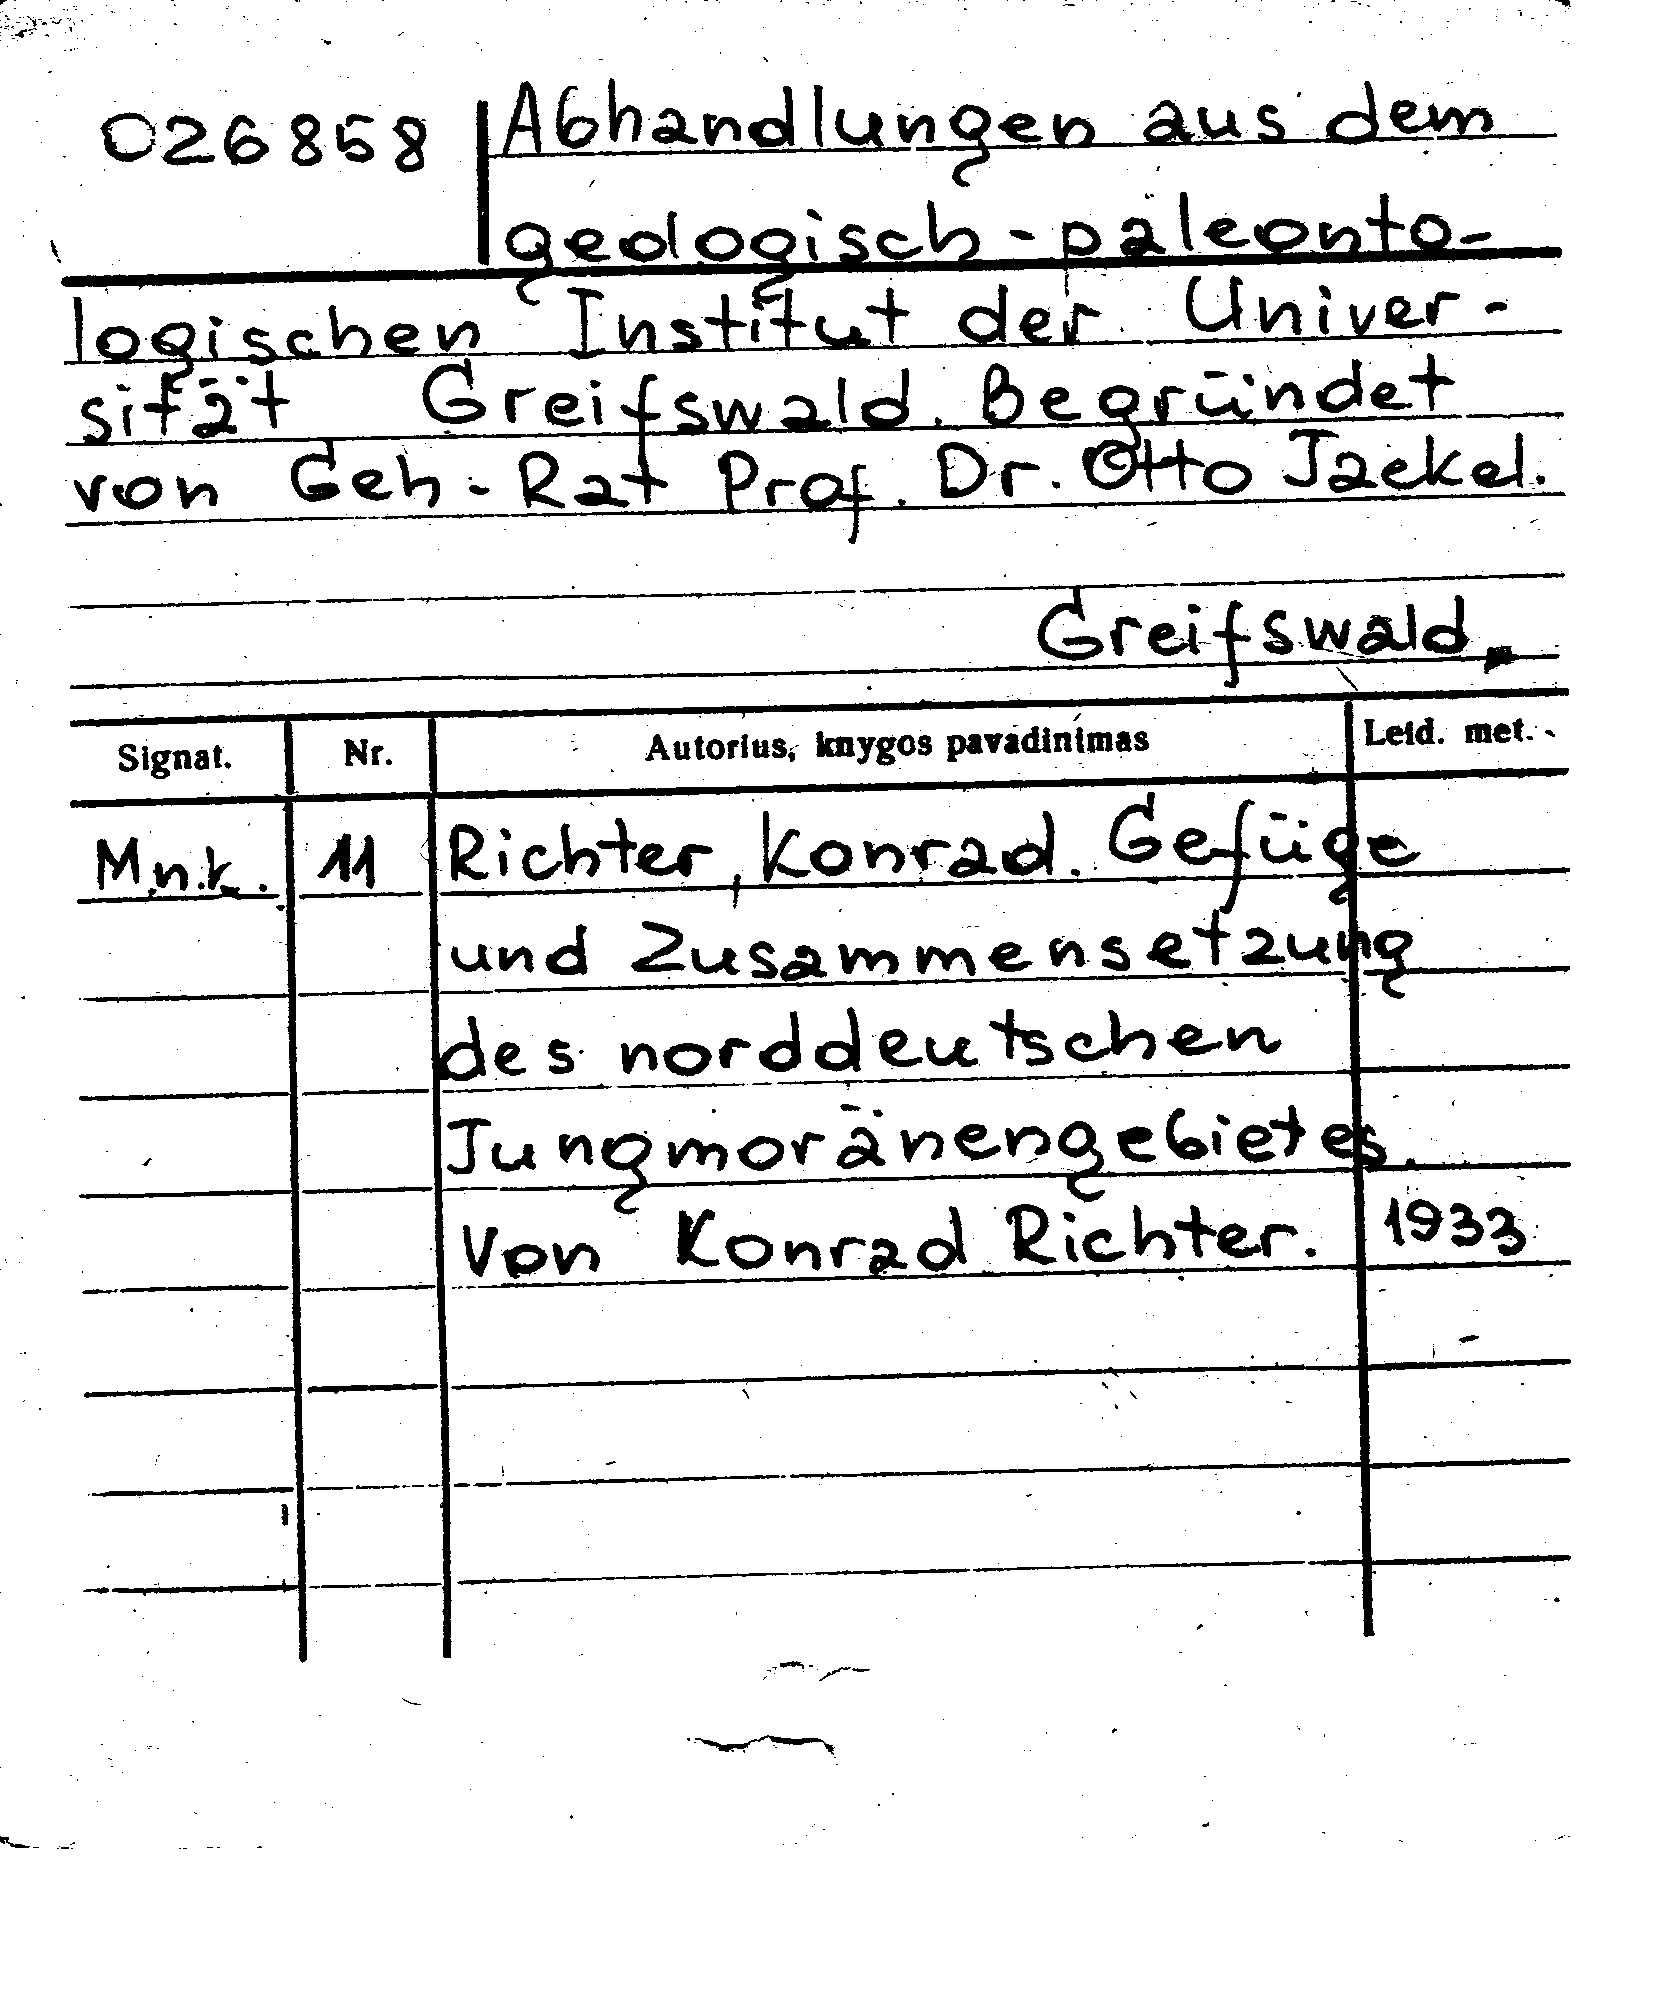 026858 Abhandlungen aus dem
geologisch-paleonto-
logischen Institut der Univer-
sität Greifswald. Begründet
von Geh-Rat Prof. Dr. Otto Jaekel.
Greifswald,
Signat. Nr. Autorius, knygos pavadinimas Leid. met.
M.n.k. 11 Richter, Konrad. Gefüge
und Zusammensetzung
des norddeutschen
Jungmoränengebietes.
Von Konrad Richter. 1933